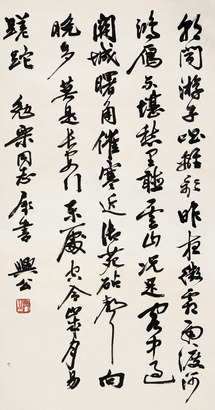 朝聞游子唱離歌昨夜微霜初渡河
鴻雁不堪愁里聽雲山况是客中過
關城曙角催寒近御苑砧聲向
晚多莫是長安行樂處空令歲月易
蹉跎 樂同志屬書 興公